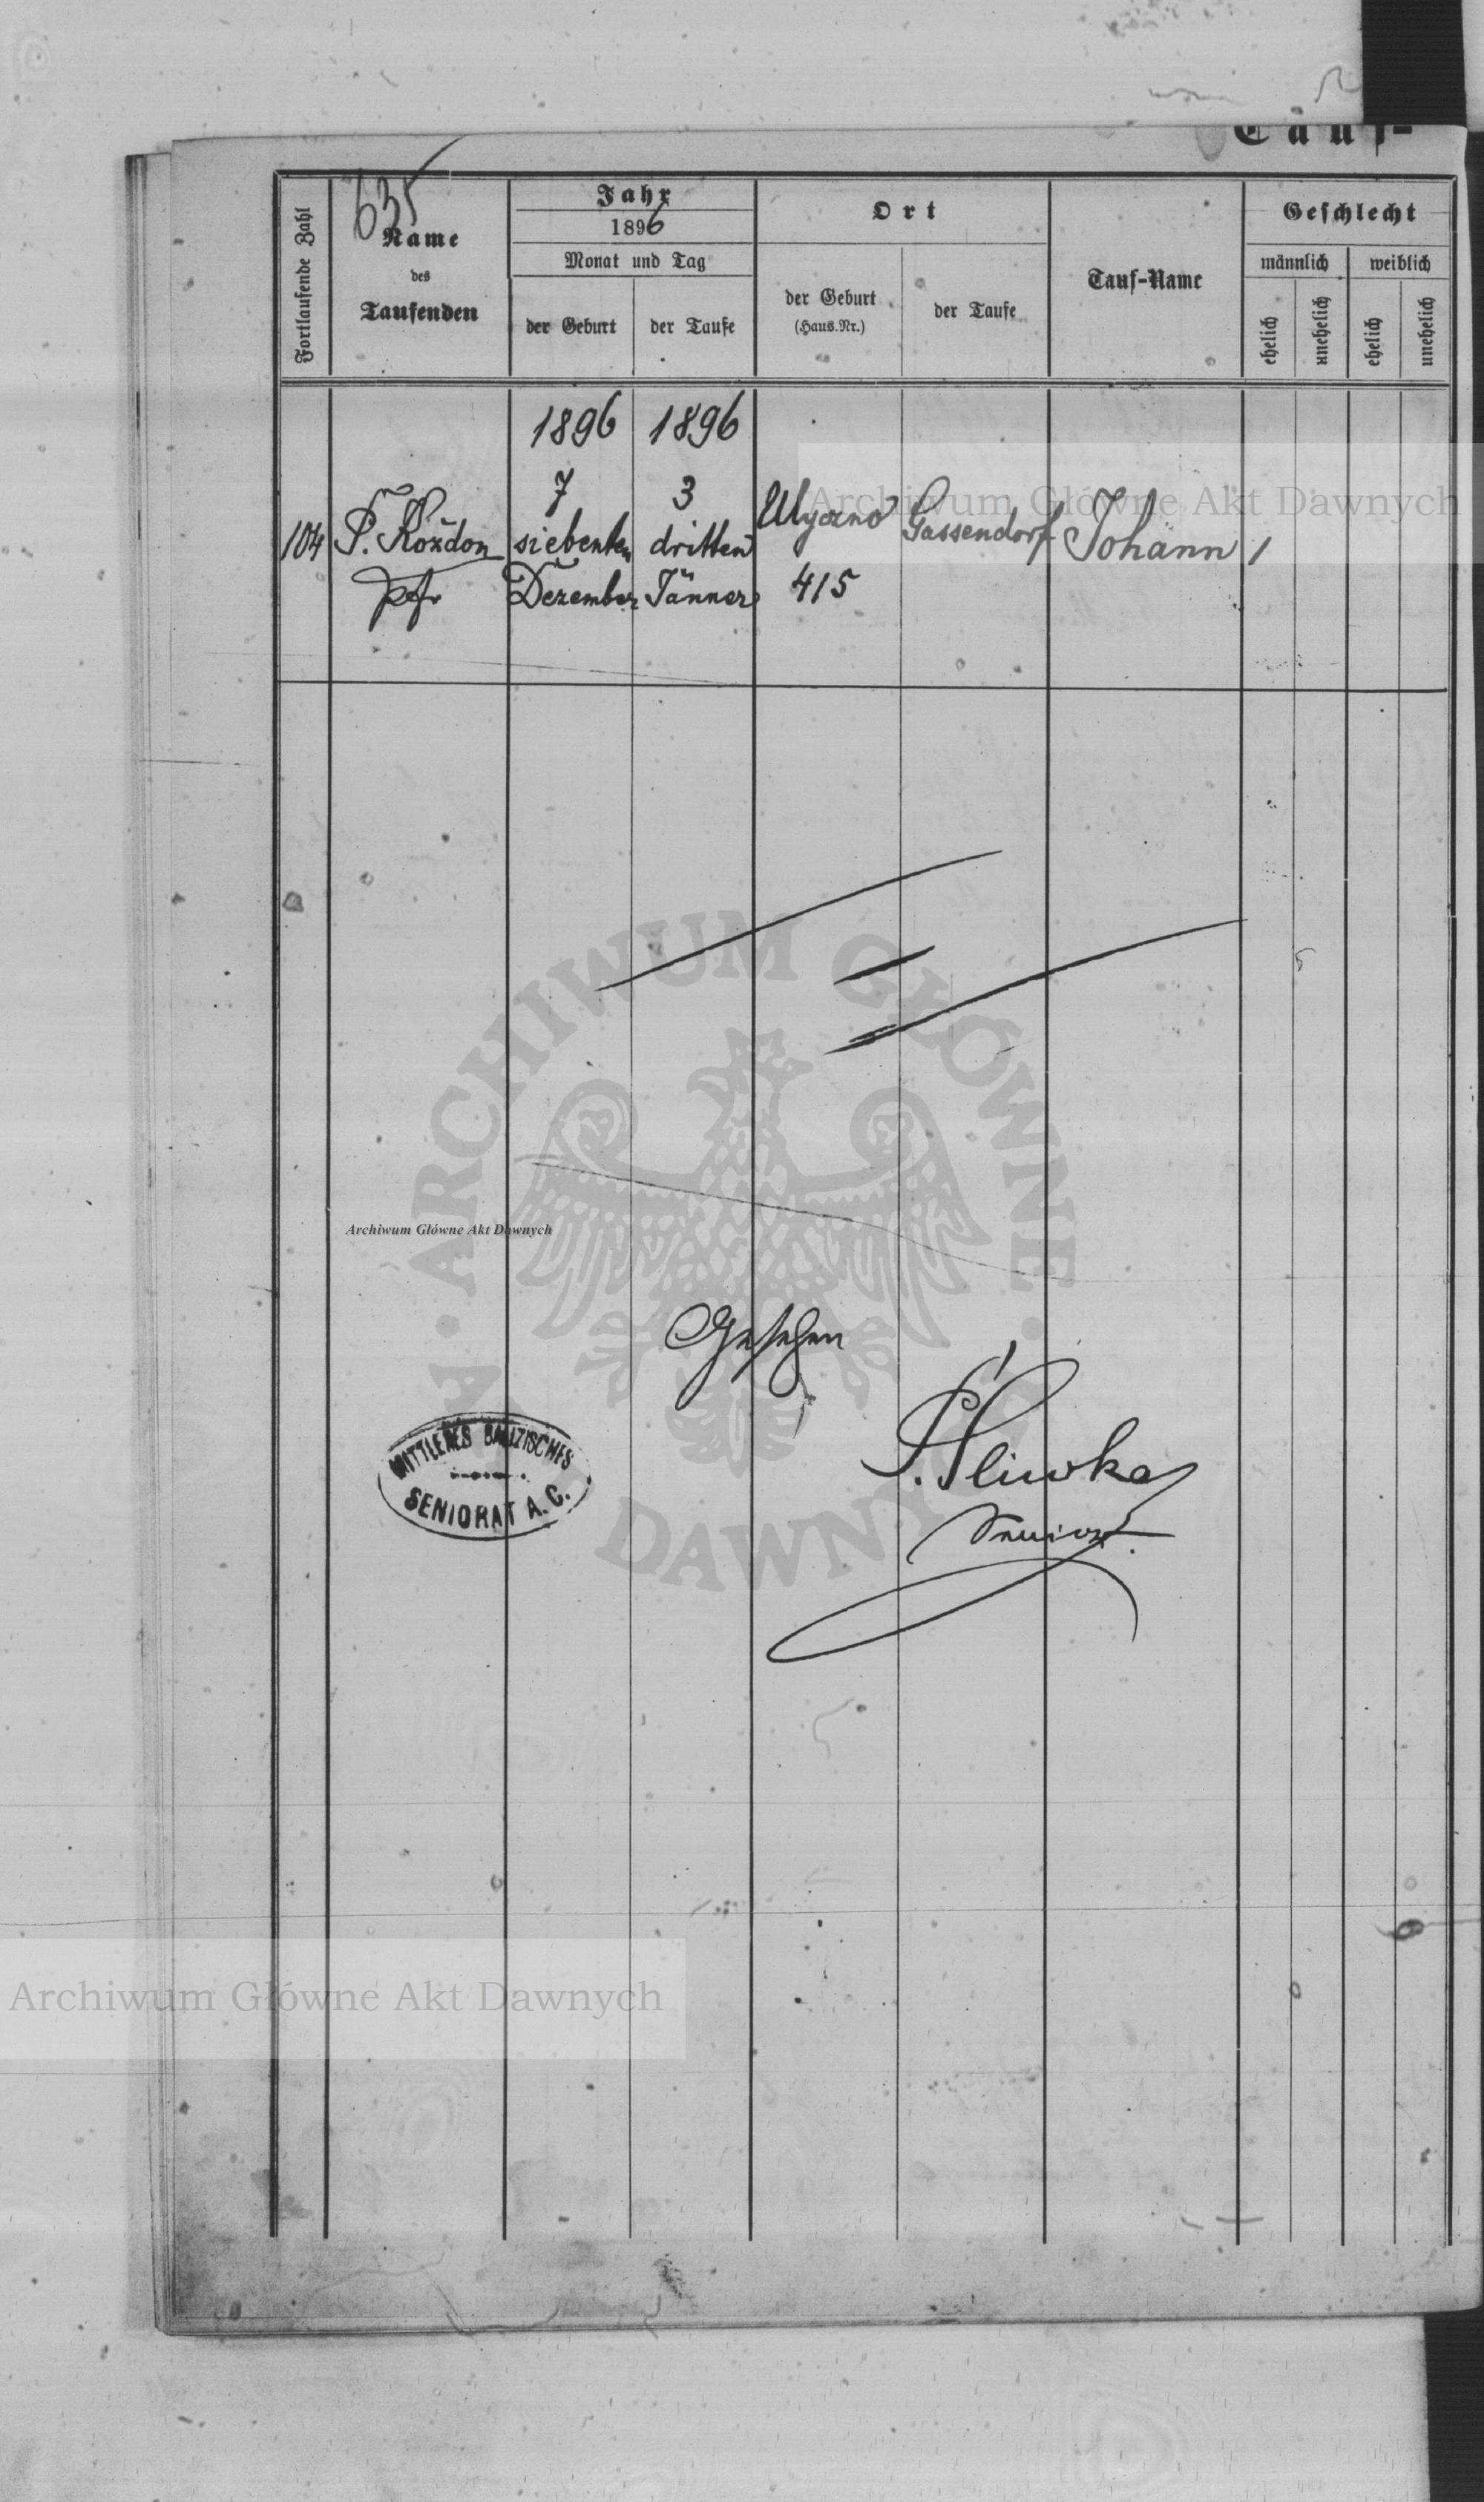 Tauf-
635
Fortlaufende Zahl
Name
des
Taufenden
Jahr
1896
Monat und Tag
der Geburt
der Taufe
Ort
der Geburt
(Haus-Nr.)
der Taufe
Tauf-Name
Geschlecht
männlich
weiblich
ehelich
unehelich
ehelich
unehelich
1896 1896
7 3
104 P. Kożdon siebenten dritten Gassendorf Johann 1
pfr Dezember Jänner 415
Archiwum Główne Akt Dawnych
ARCHIWUM GŁÓWNE
DAWNYCH
Archiwum Główne Akt Dawnych
Gesehen
MITTLERES GALIZISCHES
SENIORAT A. C.
Śliwka
Senior.
Archiwum Główne Akt Dawnych